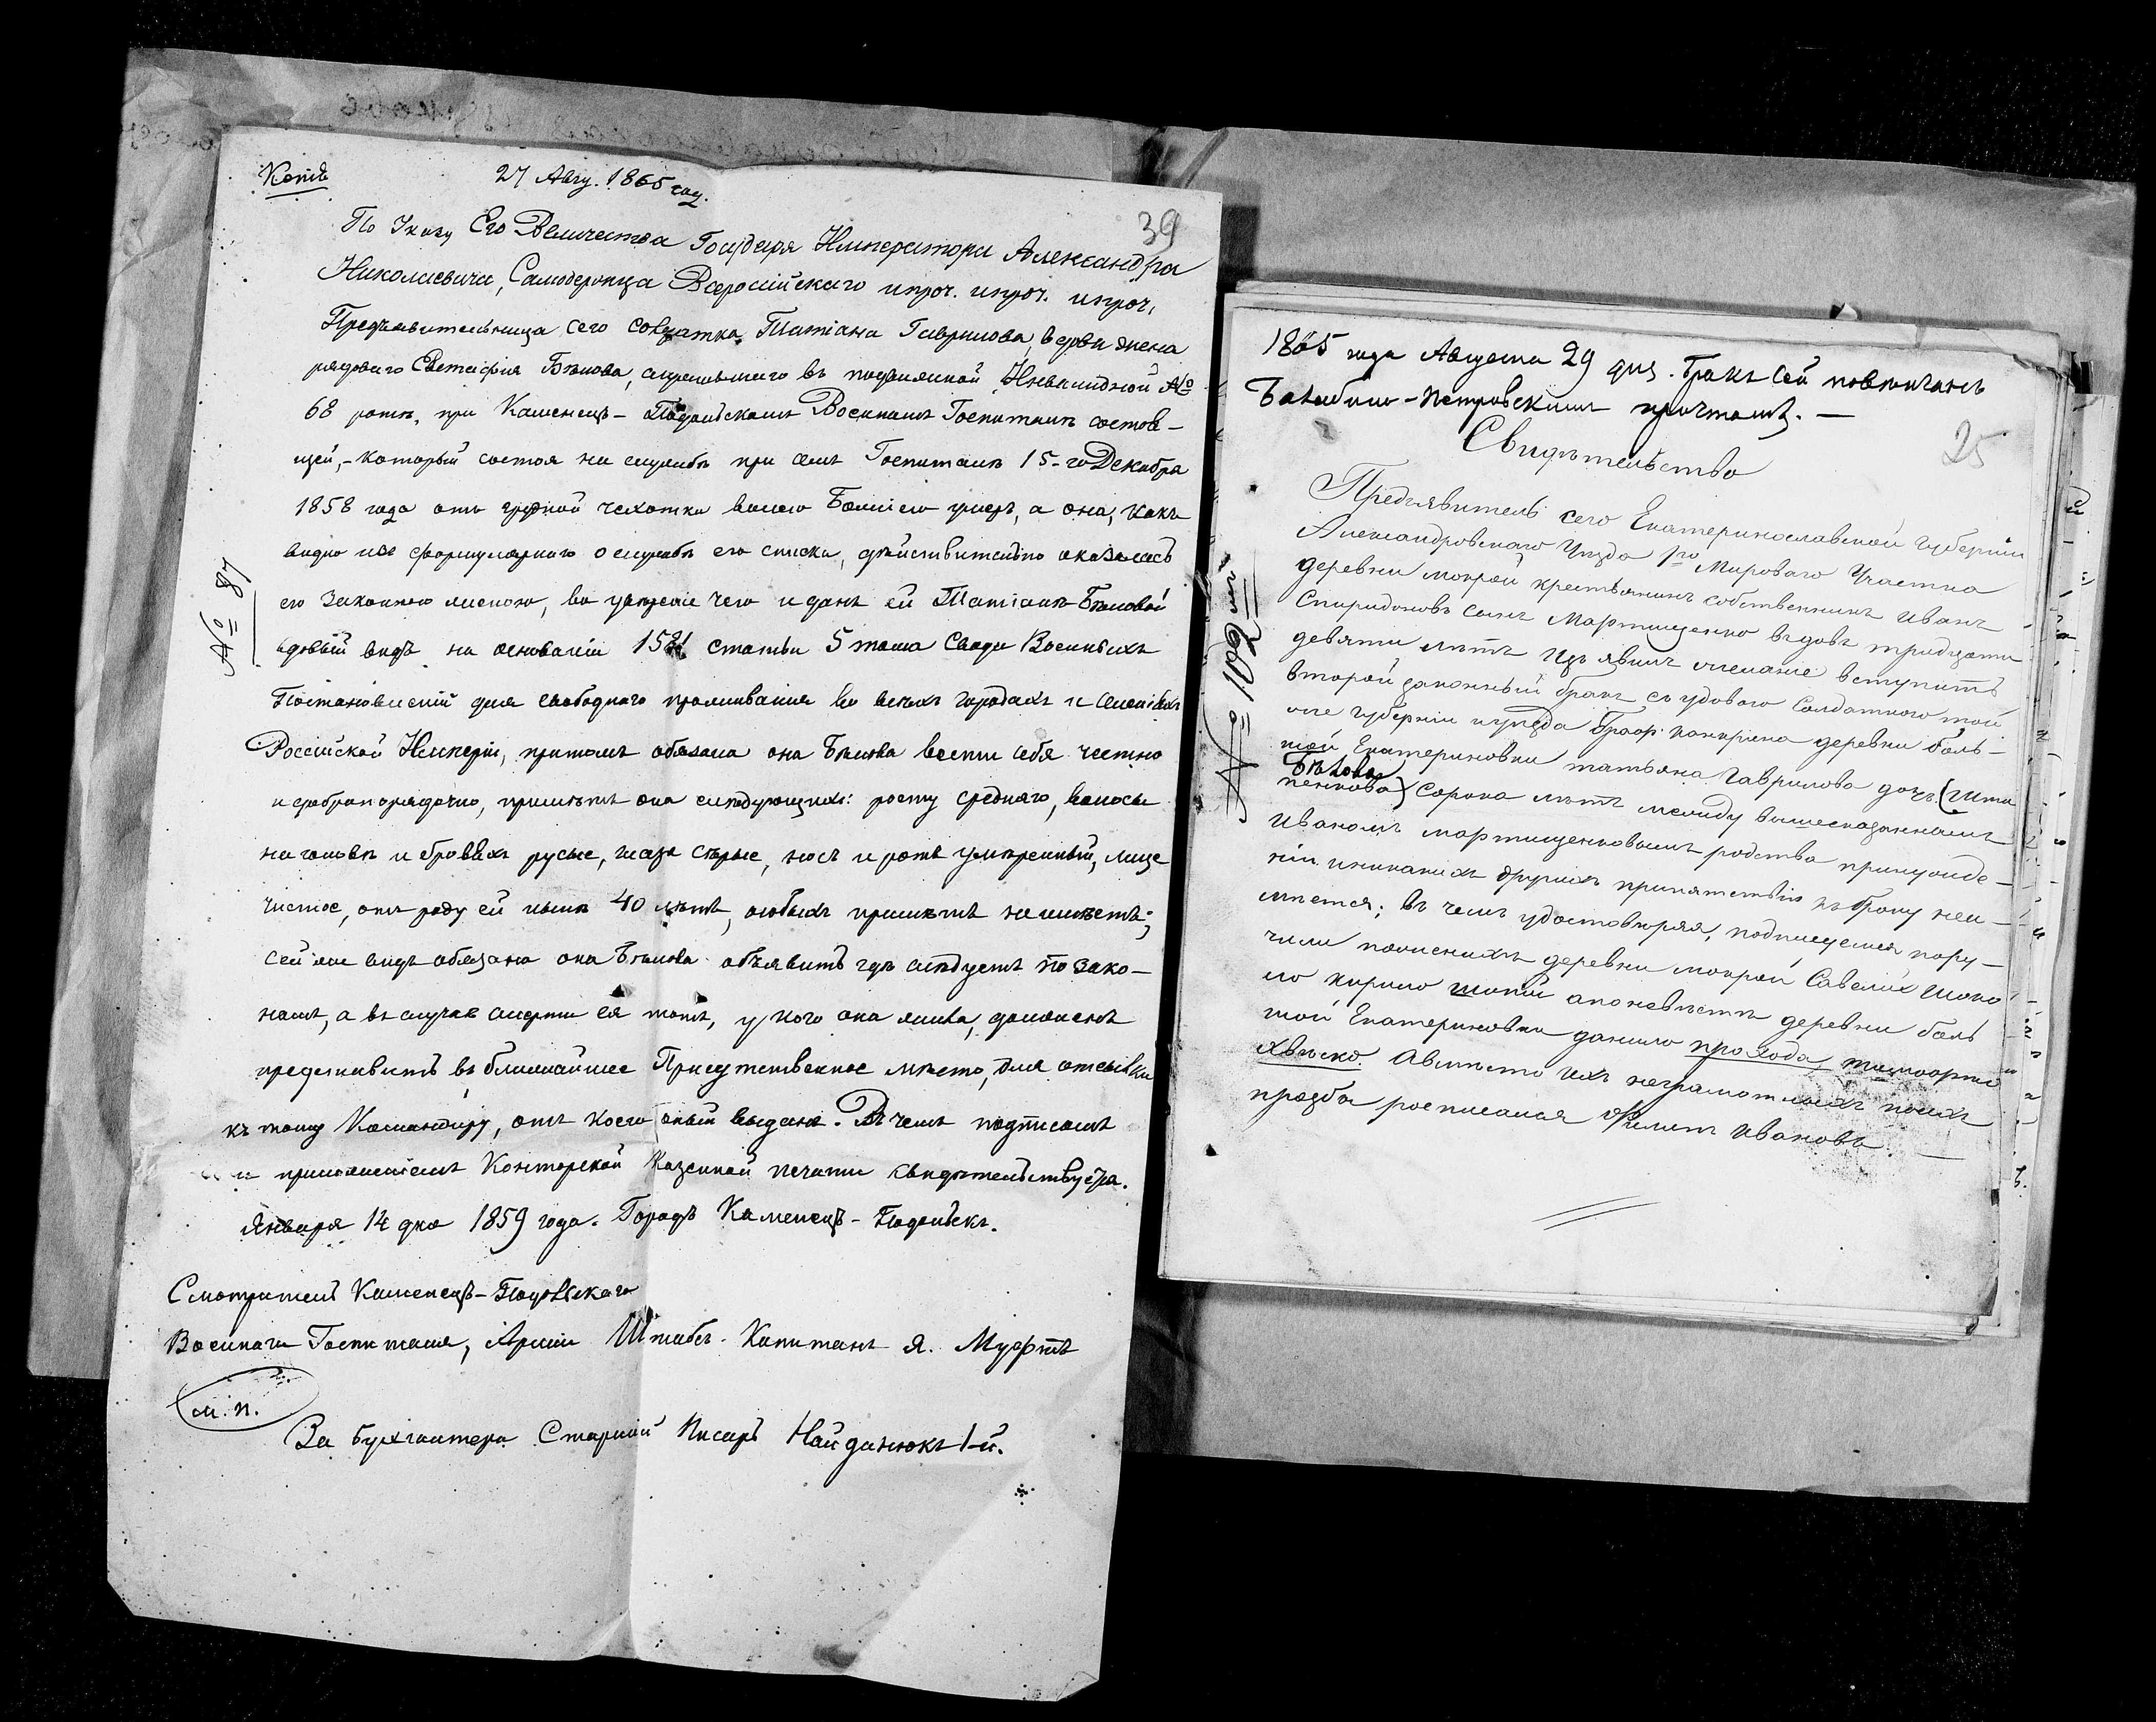 Копія
27 Авгу. 1865 год.
39
По Указу Его Величества Государя Императора Александра
Николаевича, Самодержца Всеросійскаго ипроч. ипроч. ипроч,
Предъявительница сего солдатка Татіана Гаврилова, вдова жена
рядоваго Евстафія Бѣлова, служившаго въ подвижной Инвалидной №
68 ротѣ, при Каменецъ-Подольскомъ Военномъ Госпиталѣ состоя-
щей,- который состоя на службѣ при семъ Госпиталѣ 15-го Декабря
1858 года отъ грудной чахотки волею Божіею умеръ, а она, какъ
видно изъ формулярнаго о службѣ его списка, дѣйствительно оказалась
его законною женою, во увѣреніе чего и данъ ей Татіанѣ Бѣловой
вдовій видъ на основаніи статьи 5 тома Свода Военныхъ
Постановленій для свободнаго проживанія во всѣхъ городахъ и селеніяхъ
Россійской Имперіи, притомъ обязана она Бѣлова вести себя честно
и добропорядочно, примѣтъ она слѣдующихъ: росту средняго, волосы
на головѣ и бровяхъ русые, глаза сѣрые, носъ и ротъ умѣренный, лице
чистое, отъ роду ей нынѣ 40 лѣтъ, особыхъ примѣтъ неимѣетъ;
сей же видъ обязана она Бѣлова объявить гдѣ слѣдуетъ по зако-
намъ, а въ случаѣ смерти ея тотъ, у кого она жила, долженъ
представить въ ближайшее Присутственное мѣсто, для отсылки
къ тому Командиру, отъ коего оный выданъ. Въ чемъ подписомъ
и приложеніемъ Конторской Казенной печати свидѣтельствуется.
Января 14 дня 1859 года. Городъ Каменецъ-Подольскъ.
Смотритель Каменецъ-Подольскаго
Военнаго Госпиталя, Арміи Штабсъ-Капитанъ Я.
М.П.
За бухгалтера Старшій Писарь Найданюкъ 1-й.
№ 87
1865 года Августа 29 дня. Бракъ сей повѣнчанъ
Балабино-Петровскимъ причтомъ. —
25
Свидѣтельство
Предъявитель сего Екатеринославской губерніи
Александровскаго Уѣзда 1го Мироваго Участка
деревни мокрой крестьянинъ собственникъ Иванъ
Спиридоновъ сынъ Мартищенко въдовъ тридцати
девяти лѣтъ изъявилъ желаніе вступить
второй законный бракъ съ удовою солдаткою той
же губерніи иуѣзда деревни боль-
шой Екатериновки татьяна Гаврилова дочь (Шта
Бѣлова
пенкова) сорока лѣтъ между вышесказаннымъ
Иваномъ мартищенковымъ родства принужде-
нія иникакихъ другихъ припятствіи къбраку неи-
мѣется; въ чемъ удостовѣряя, подпишемся пору-
чили поженихѣ деревни мокрой Савелій
ло кирило аполевѣстѣ деревни боль
шой Екатериновки данило прохода,
Авмѣсто ихъ неграмотныхъ поихъ
прозба росписался Филипъ Ивановъ
№ 1109